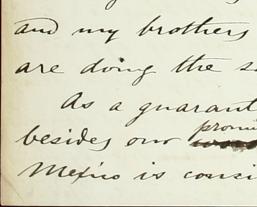 and my brothers
are doing the s
As a guarant
promi
besides our
Mexico is consi